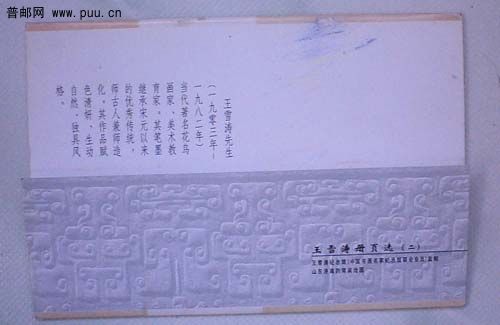 普邮网
www.puu.cn
王雪涛先生
(一九零三年-
一九八二年)
当代著名花鸟
画家、美术教
育家。其笔墨
继承宋元以来
的优秀传统,
师古人兼师造
化。其作品赋
色清妍、生动
自然,独具风
格。
王雪涛册页选(二)